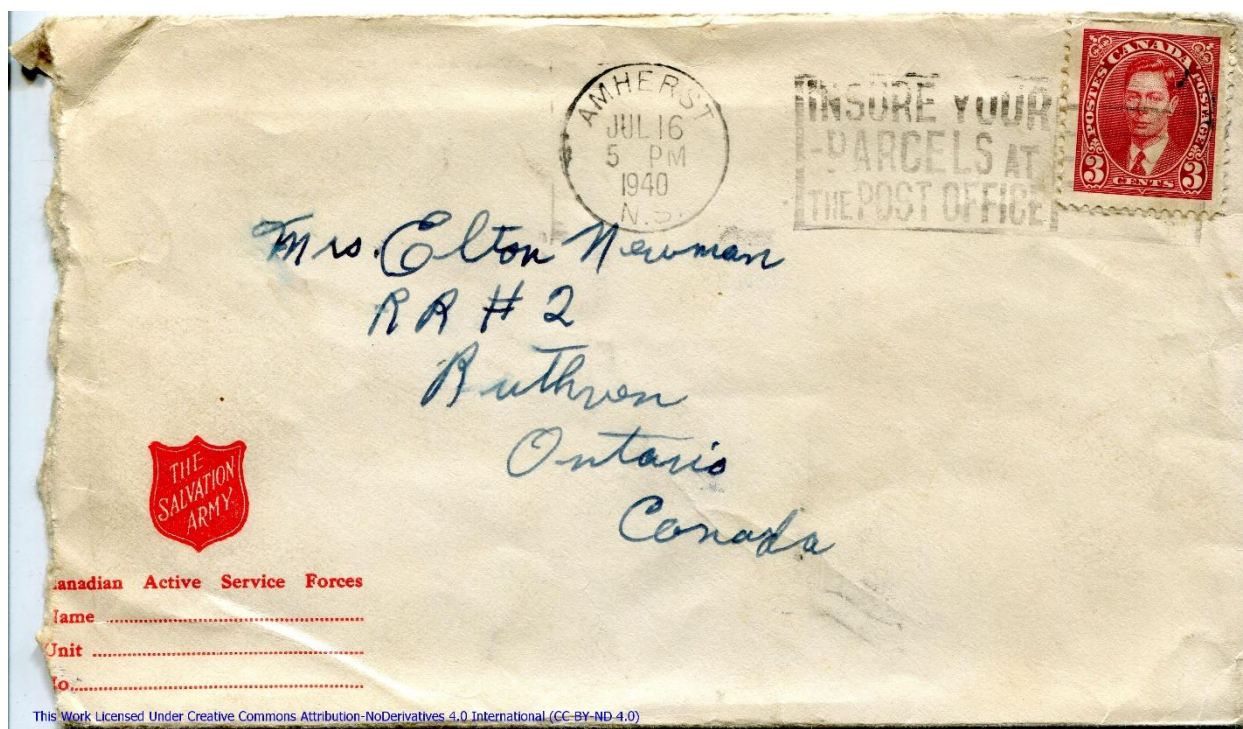 AMHERST
JUL 16
5 PM
1940
N.S.
INSURE YOUR
PARCELS AT
THE POST OFFICE
POSTES CANADA POSTAGE
3 CENTS 3
Mrs. Elton Newman
RR # 2
Ruthven
Ontario
Canada
THE
SALVATION
ARMY
anadian Active Service Forces
ame
Unit
o
This Work Licensed Under Creative Commons Attribution-NoDerivatives 4.0 International (CC BY-ND 4.0)